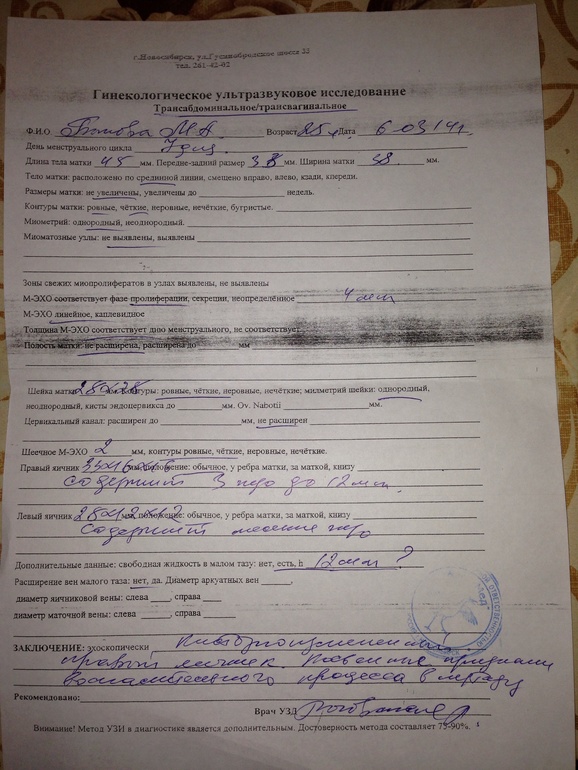 г.Новосибирск, ул.Гусинобродское шоссе 33
тел. 261-42-02
Гинекологическое ультразвуковое исследование
Трансабдоминальное/трансвагинальное
Ф.И.О М А Возраст 25 Дата 6 03/14г.
День менструального цикла 7 день
Длина тела матки 45 мм. Передне-задний размер 38 мм. Ширина матки 38 мм.
Тело матки: расположено по срединной линии, смещено вправо, влево, кзади, кпереди.
Размеры матки: не увеличены, увеличены до недель.
Контуры матки: ровные, чёткие, неровные, нечёткие, бугристые.
Миометрий: однородный, неоднородный.
Миоматозные узлы: не выявлены, выявлены
Зоны свежих миопролифератов в узлах выявлены, не выявлены
М-ЭХО соответствует фазе пролиферации, секреции, неопределённое 4 мм
М-ЭХО линейное, каплевидное
Толщина М-ЭХО соответствует дню менструального, не соответствует
Полость матки: не расширена, расширена до мм
Шейка матки 28х28 мм, контуры: ровные, чёткие, неровные, нечёткие; милметрий шейки: однородный,
неоднородный, кисты эндоцервикса до мм. Ov. Nabotii мм.
Цервикальный канал: расширен до мм, не расширен
Шеечное М-ЭХО 2 мм, контуры ровные, чёткие, неровные, нечёткие.
Правый яичник мм, положение: обычное, у ребра матки, за маткой, книзу
содержит 3 до 12 мм.
Левый яичник 28х12х12 мм, положение: обычное, у ребра матки, за маткой, книзу
Содержит мелкие
Дополнительные данные: свободная жидкость в малом тазу: нет, есть, h 12 мм ?
Расширение вен малого таза: нет, да. Диаметр аркуатных вен
диаметр яичниковой вены: слева , справа
диаметр маточной вены: слева , справа
ЗАКЛЮЧЕНИЕ: эхоскопически Кистозноизмененный
правый яичник. Косвенные признаки
воспалительного процесса в м/тазу
Рекомендовано:
Врач УЗД
Внимание! Метод УЗИ в диагностике является дополнительным. Достоверность метода составляет 75-90%.